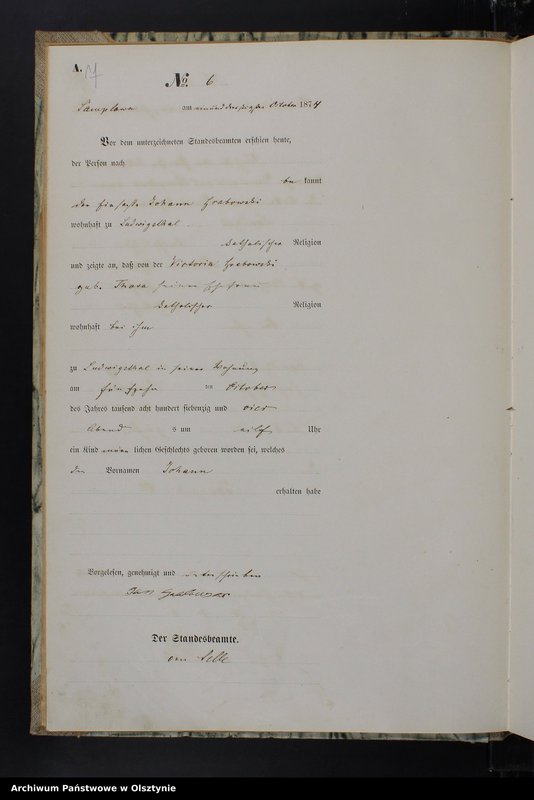 A.
No. 6
Samplawa am einunddreißigsten October 1874
Vor dem unterzeichneten Standesbeamten erschien heute,
der Person nach
be kannt
der Johann Grabowski
wohnhaft zu Ludwigsthal
katholischer Religion
und zeigte an, daß von der Victoria Grabowski
geb. seiner Ehefrau
katholischer Religion
wohnhaft bei ihm
zu Ludwigsthal in seiner Wohnung
am fünfzehn ten October
des Jahres tausend acht hundert siebenzig und vier
Abend s um eilf Uhr
ein Kind männ lichen Geschlechts geboren worden sei, welches
den Vornamen Johann
erhalten habe
Vorgelesen, genehmigt und unterschrieben
Der Standesbeamte.
Archiwum Państwowe w Olsztynie